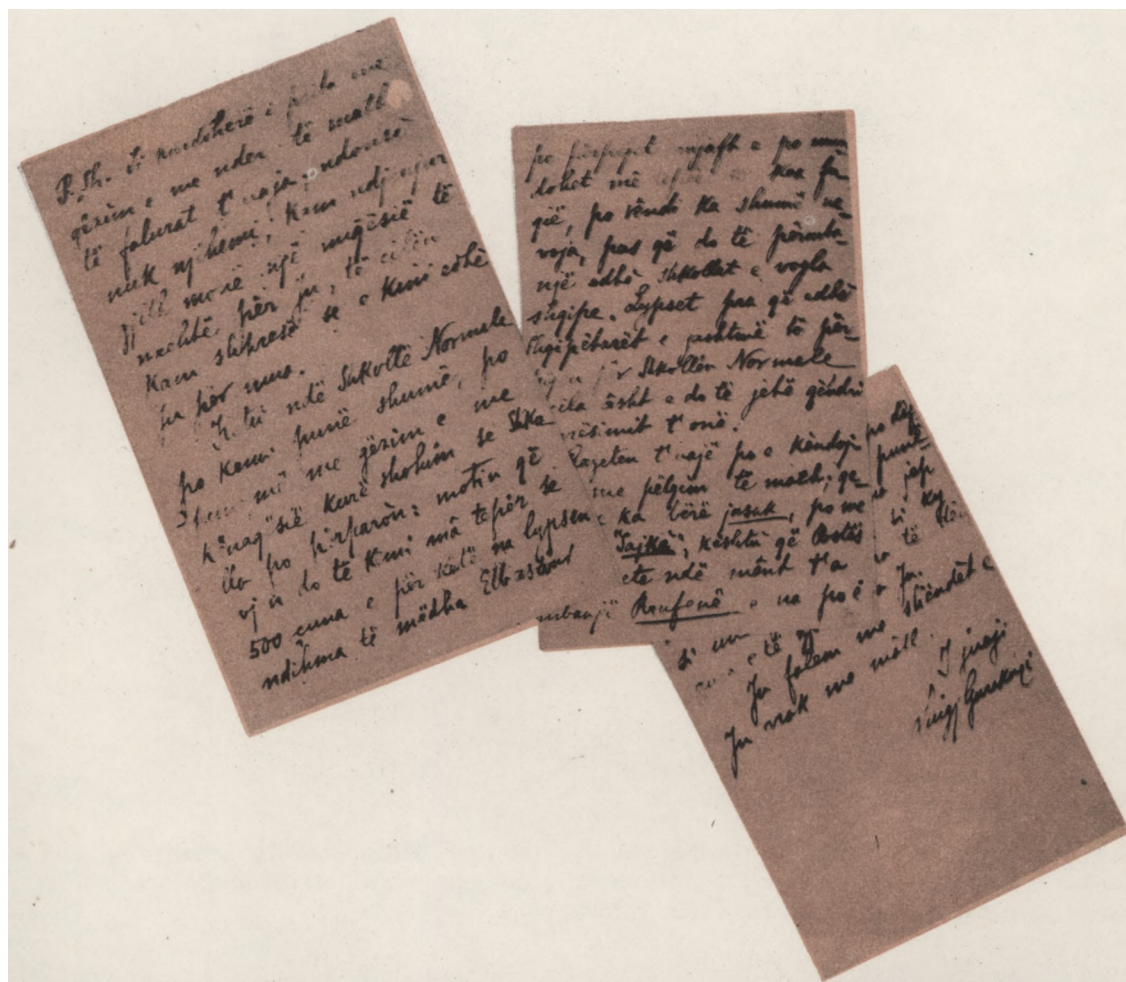 P. Sh. Si kurdoherë e pata me
gëzim e me nder të math
të falurat t'uaja, ndonësë
nuk njihemi, kam ndjenjur
një miqësië të
nxehtë për ju, të cilën
kam shpresë se e kini edhè
ju për mua.
Këtu ndë Shkollë Normale
po kemi punë shumë, po
me gëzim e me
k'naqësië kurë shohim se Shko
lla po përparòn: motin që
vjen do të kemi më tepër se
500 çuna e për këtë na lypsen
ndihma të mëdha. Elbasani
po përpiqet mjaft e po mu
lohet më tepër kaa fu
qië, po vëndi ka shumë ne
voja, pas që do të përmba-
një edhè shkollat e vogla
shqipe. Lypset pra që edhè
Shqipëtarët e jashtmë të për
për Shkollën Normale
cila âsht e do të jetë qëndri
mësimit t'onë.
Gazetën t'uajë po e këndoj
me pëlqim të math; qe-
ka bërë jasak, po me
"Sajkë", kështu që Postës
ndë mënt t'a
mbanjë Raufenë e na po
si
Ju falem me shëndet e
Ju rrok me mall.
I juaji
Luigj Gurakuqi
po dër
punë
jap
ky
të
Ju.